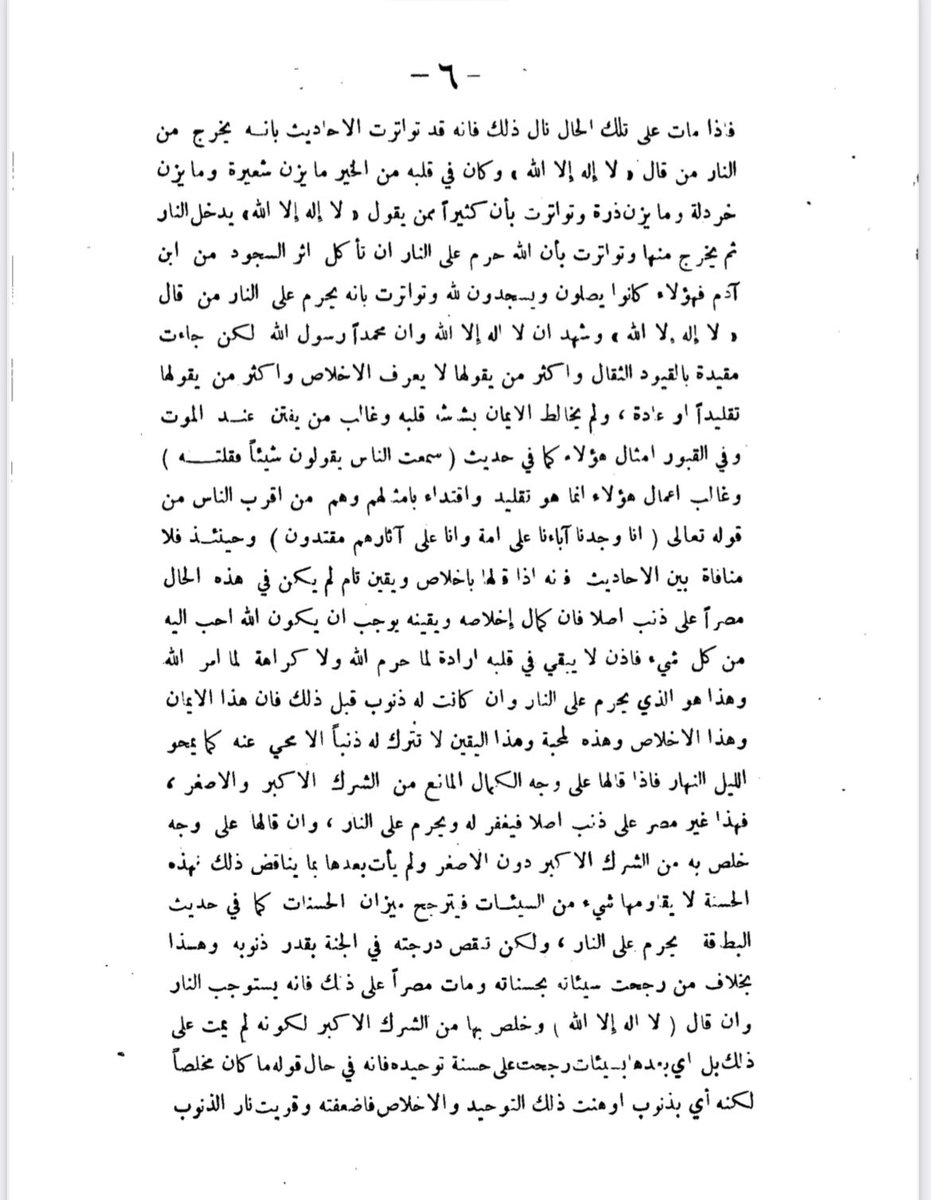 - ٦ -
فاذا مات على تلك الحال نال ذلك فانه قد تواترت الاحاديث بانه يخرج من
النار من قال « لا إله إلا الله » وكان في قلبه من الخير ما يزن شعيرة وما يزن
خردلة وما يزن ذرة وتواترت بأن كثيراً ممن يقول « لا إله إلا الله » يدخل النار
ثم يخرج منها وتواترت بأن الله حرم على النار ان تأكل اثر السجود من ابن
آدم فهؤلاء كانوا يصلون ويسجدون لله وتواترت بانه يحرم على النار من قال
« لا إله إلا الله » وشهد ان لا اله إلا الله وان محمداً رسول الله لكن جاءت
مقيدة بالقيود الثقال واكثر من يقولها لا يعرف الاخلاص واكثر من يقولها
تقليداً او عادة ، ولم يخالط الايمان بشاشة قلبه وغالب من يفتن عند الموت
وفي القبور امثال هؤلاء كما في حديث ( سمعت الناس يقولون شيئاً فقلته )
وغالب اعمال هؤلاء انما هو تقليد واقتداء بامثالهم وهم من اقرب الناس من
قوله تعالى ( انا وجدنا آباءنا على امة وانا على آثارهم مقتدون ) وحينئذ فلا
منافاة بين الاحاديث فانه اذا قالها باخلاص ويقين تام لم يكن في هذه الحال
مصراً على ذنب اصلا فان كمال إخلاصه ويقينه يوجب ان يكون الله احب اليه
من كل شيء فاذن لا يبقي في قلبه ارادة لما حرم الله ولا كراهة لما امر الله
وهذا هو الذي يحرم على النار وان كانت له ذنوب قبل ذلك فان هذا الايمان
وهذا الاخلاص وهذه المحبة وهذا اليقين لا تترك له ذنباً الا محي عنه كما يمحو
الليل النهار فاذا قالها على وجه الكمال المانع من الشرك الاكبر والاصغر ،
فهذا غير مصر على ذنب اصلا فيغفر له ويحرم على النار ، وان قالها على وجه
خلص به من الشرك الاكبر دون الاصغر ولم يأت بعدها بما يناقض ذلك فهذه
الحسنة لا يقاومها شيء من السيئات فيترجح ميزان الحسنات كما في حديث
البطاقة يحرم على النار ، ولكن تنقص درجته في الجنة بقدر ذنوبه وهذا
بخلاف من رجحت سيئاته بحسناته ومات مصراً على ذلك فانه يستوجب النار
وان قال ( لا اله إلا الله ) وخلص بها من الشرك الاكبر لكونه لم يمت على
ذلك بل اي بعدها بسيئات رجحت على حسنة توحيده فانه في حال قوله ما كان مخلصاً
لكنه أي بذنوب اوهنت ذلك التوحيد والاخلاص فاضعفته وقويت نار الذنوب